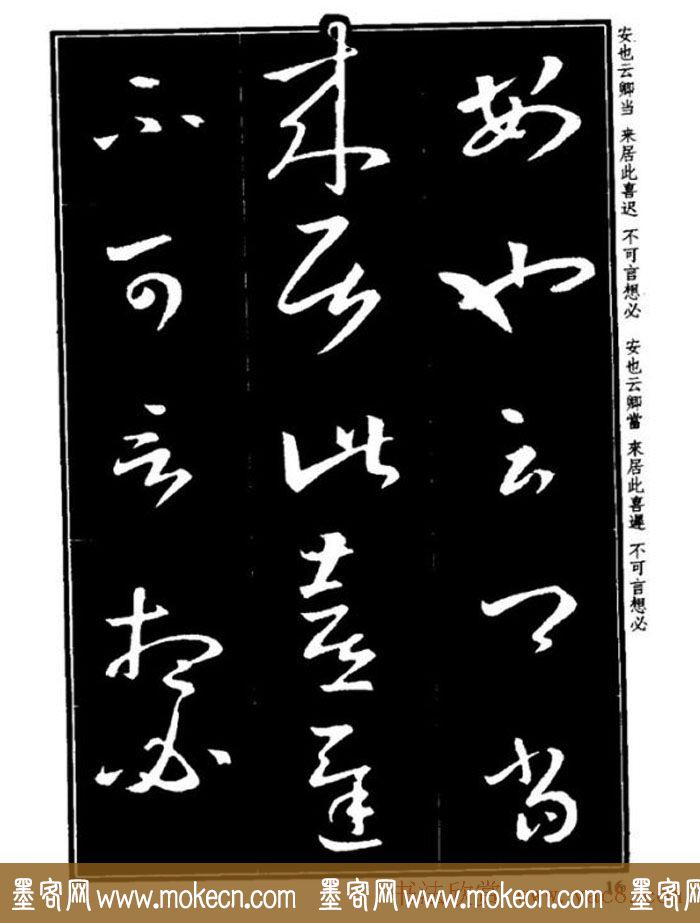 安也云卿当
来居此喜迟
不可言想必
安也云卿当 来居此喜迟 不可言想必
安也云卿當 來居此喜遲 不可言想必
16
墨客网 www.mokecn.com 墨客网 www.mokecn.com 墨客网
书法欣赏